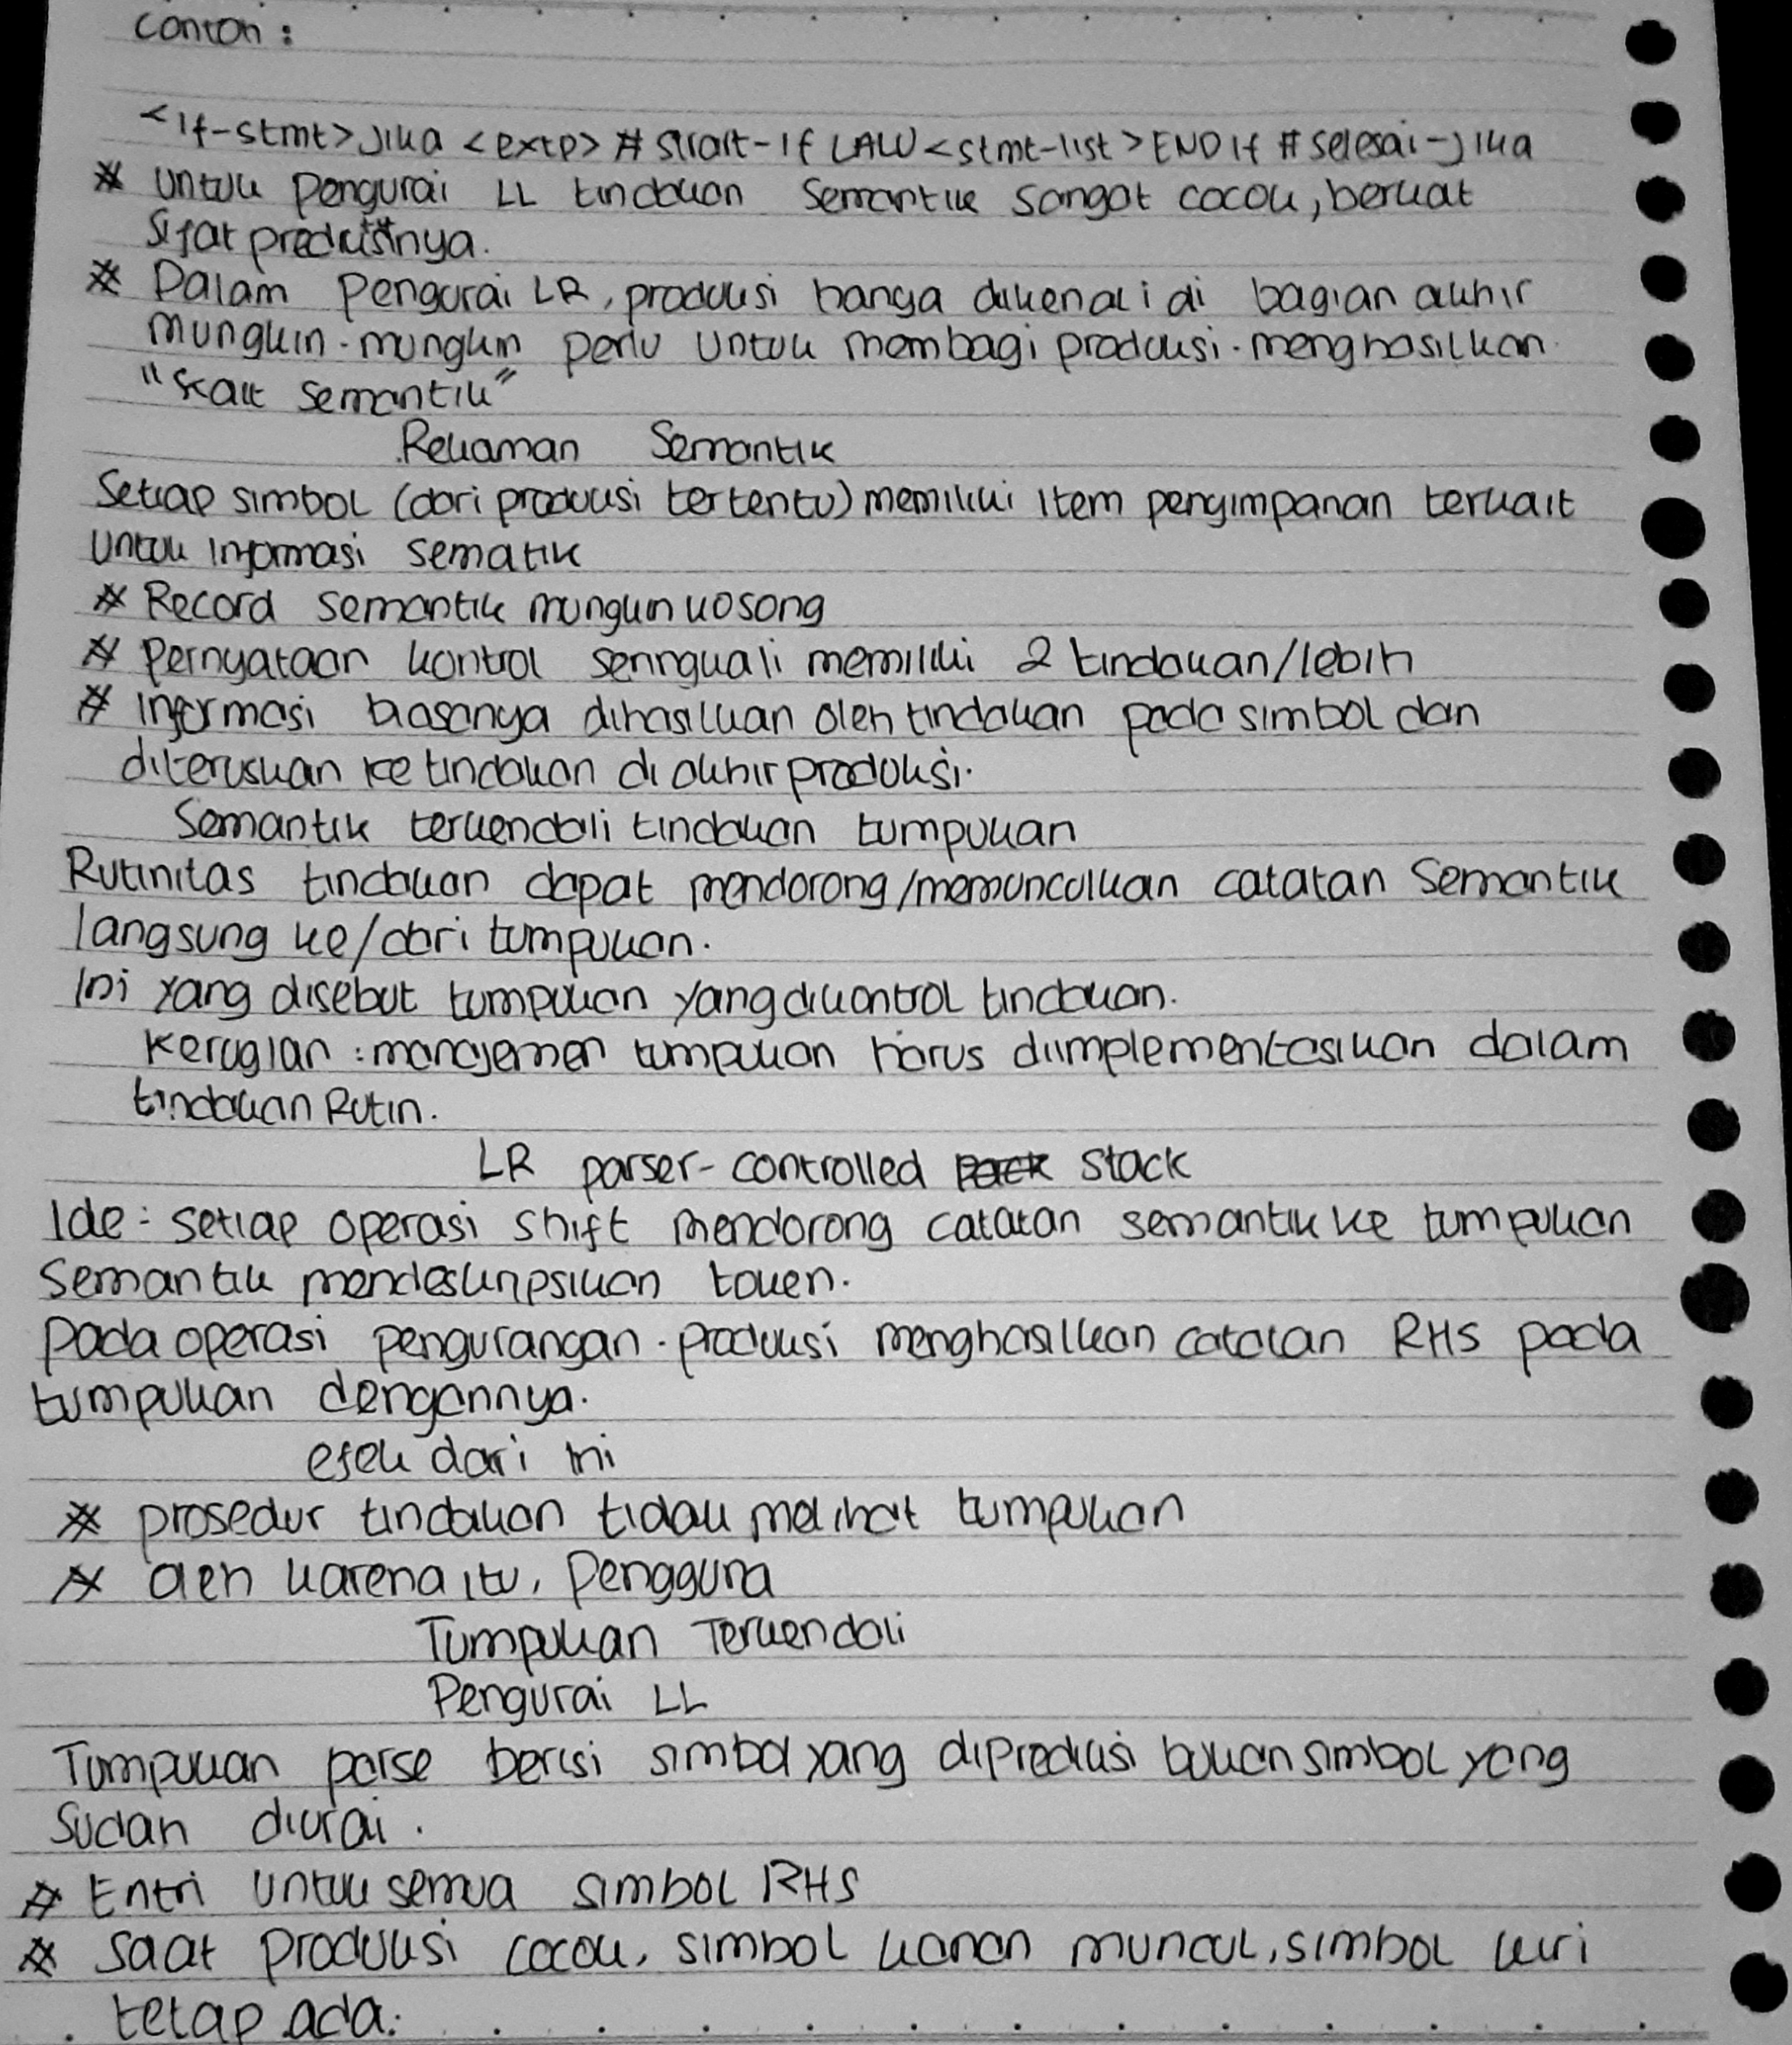 Contoh :
<If-stmt> Jika <extp> # Strart-If LALU <stmt-list> END If # selesai-Jika
* Untuk Pengurai LL tindakan Semantik Sangat cocok, berkat
Sifat prediktifnya.
* Dalam Pengurai LR, produksi hanya dikenali di bagian akhir
mungkin. mungkin perlu Untuk membagi produksi. menghasilkan.
" semantik"
Rekaman Semantik
Setiap simbol (dari produksi tertentu) memiliki Item penyimpanan terkait
Untuk Informasi Sematik
* Record semantik mungkin kosong
* Pernyataan kontrol seringkali memiliki 2 tindakan/lebih
* Informasi biasanya dihasilkan oleh tindakan pada simbol dan
diteruskan ke tindakan di akhir produksi.
Semantik terkendali tindakan tumpukan
Rutinitas tindakan dapat mendorong/memunculkan catatan Semantik
langsung ke/dari tumpukan.
Ini yang disebut tumpukan yang dikontrol tindakan.
Kerugian : manajemen tumpukan harus diimplementasikan dalam
tindakan Rutin.
LR parser-controlled stack
Ide : setiap operasi shift mendorong catatan semantik ke tumpukan
Semantik mendeskripsikan token.
Pada operasi pengurangan. produksi menghasilkan catatan RHS pada
tumpukan dengannya.
efek dari ini
* prosedur tindakan tidak melihat tumpukan
* oleh karena itu, Pengguna
Tumpukan Terkendali
Pengurai LL
Tumpukan parse berisi simbol yang diprediksi bukan simbol yang
Sudah diurai.
* Entri Untuk semua simbol RHS
* Saat Produksi cocok, simbol kanan muncul, simbol kiri
tetap ada.